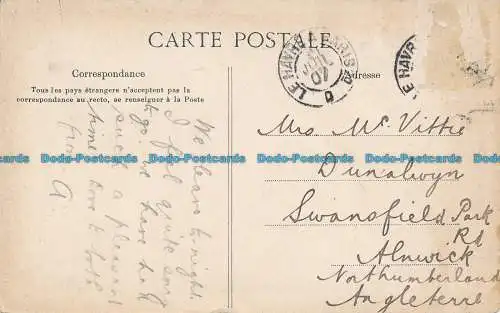 CARTE POSTALE
Correspondance
Tous les pays étrangers n'acceptent pas la
correspondance au recto, se renseigner à la Poste
Adresse
LE HAVRE A PARIS
LE HAVR
We leave to-night
I feel quite sorry
to go, we have had
such a pleasant
time. Love to both
from A
Mrs Mc Vittie
Dunalwyn
Swansfield Park
Rd
Alnwick
Northumberland
Angleterre
Dodo-Postcards Dodo-Postcards Dodo-Postcards Dodo-Postcards Dodo-Postcards